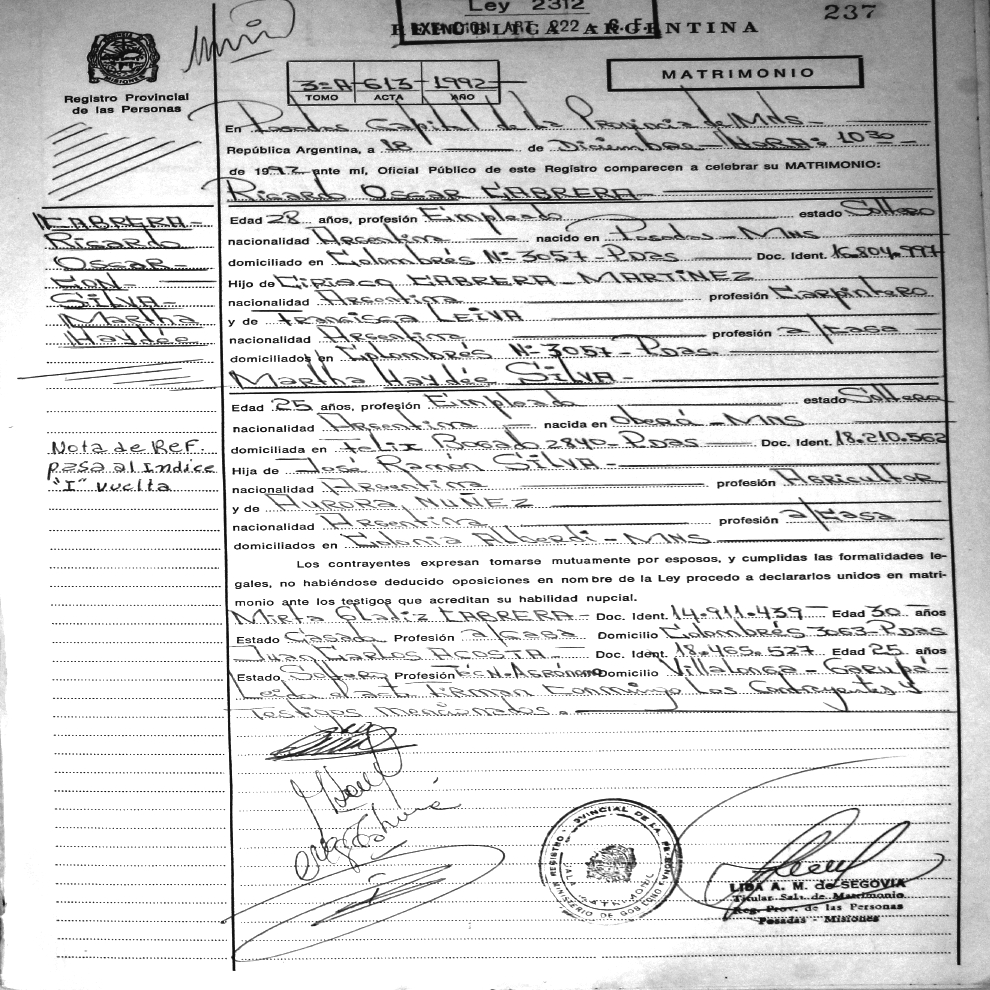 Ley 2312
EXENCION ART. 222 C.F.
REPUBLICA ARGENTINA
237
MISIONES
Registro Provincial
de las Personas
3=A 613 1992
TOMO ACTA AÑO
MATRIMONIO
En Posadas Capital de la Provincia de MNS
República Argentina, a 18 de Diciembre - HORA: 10 30
de 1992 ante mí, Oficial Público de este Registro comparecen a celebrar su MATRIMONIO:
Ricardo Oscar CABRERA
CABRERA
Ricardo
Oscar
CON
SILVA
Martha
Haydée
Edad 28 años, profesión Empleado estado Soltero
nacionalidad Argentina nacido en Posadas - MNS
domiciliado en Colombrés Nº 3057 - Pdas Doc. Ident. 16.804.997
Hijo de Ciriaco CABRERA MARTINEZ
nacionalidad Argentina profesión Carpintero
y de Francisca LEIVA
nacionalidad Argentina profesión a/casa
domiciliados en Colombrés Nº 3057 - Pdas.
Martha Haydée SILVA
Edad 25 años, profesión Empleado estado Soltera
nacionalidad Argentina nacida en Oberá - MNS
domiciliada en Felix Bogado 2840 - Pdas Doc. Ident. 18.210.562
Hija de José Ramón SILVA
nacionalidad Argentina profesión Agricultor
y de Aurora NUÑEZ
nacionalidad Argentina profesión a/casa
domiciliados en Colonia Alberdi - MNS
Nota de REF.
pasa al Indice
"I" vuelta
Los contrayentes expresan tomarse mutuamente por esposos, y cumplidas las formalidades le-
gales, no habiéndose deducido oposiciones en nombre de la Ley procedo a declararlos unidos en matri-
monio ante los testigos que acreditan su habilidad nupcial.
Mirta Gladiz CABRERA - Doc. Ident. 14.911.439 Edad 30 años
Estado Casada Profesión a/casa Domicilio Colombrés 3063 - Pdas
Juan Carlos ACOSTA Doc. Ident. 18.465.527 Edad 25 años
Estado Soltero Profesión Téc. Agrónomo Domicilio Villalonga - Garupá -
Leída el act. FIRMAN Conmigo Los Contrayentes y
Testigos mencionados.
REGISTRO PROVINCIAL DE LAS PERSONAS
MINISTERIO DE GOBIERNO
SALA MATRIMONIO
LIDA A. M. de SEGOVIA
Titular Sala de Matrimonio
Reg. Prov. de las Personas
Posadas - Misiones